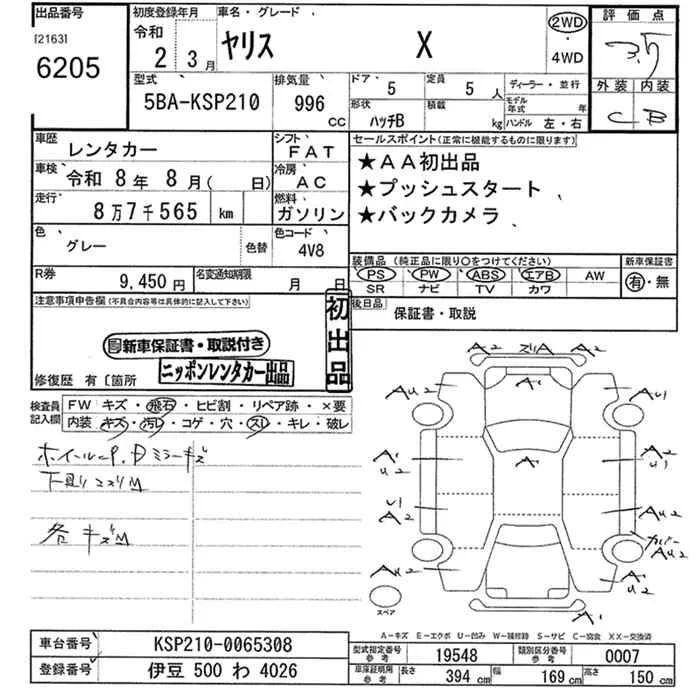 出品番号
[2163]
6205
初度登録年月
令和
2 3月
車名・グレード
ヤリス X
2WD
・
4WD
評価点
3.5
外装 内装
C B
型式
5BA-KSP210
排気量
996
CC
ドア・ 5
定員 5 人
形状
ハッチB
積載 kg
ディーラー・並行
モデル年式 年
ハンドル 左・右
車歴
レンタカー
シフト
FAT
車検 令和 8年 8月( 日)
冷房
AC
走行
8万7千565 km
燃料
ガソリン
色
グレー
色替
色コード
4V8
セールスポイント(正常に機能するものに限ります)
★AA初出品
★プッシュスタート
★バックカメラ
装備品(純正品に限り○をつけてください)
PS PW ABS エアB AW
SR ナビ TV カワ
新車保証書
有・無
R券
9,450円
名変通知期限
月 日
後日品
保証書・取説
注意事項申告欄(不具合内容等は具体的に記入して下さい)
初出品
新車保証書・取説付き
ニッポンレンタカー出品
修復歴 有〔箇所
検査員
記入欄
FW キズ・飛石・ヒビ割・リペア跡・×要
内装 キズ・汚レ・コゲ・穴・スレ・キレ・破レ
下廻りコスリM
各キズM
A2 スリA A2
AU2 A1 AU1
A1 U2 A1 A2 U1
U1 A2 AU2
カバー AU2
AU2 A2 U2
スペア
A-キズ E-エクボ U-凹み W-補修跡 S-サビ C-腐食 XX-交換済
車台番号 KSP210-0065308
登録番号 伊豆 500 わ 4026
型式指定番号
参考 19548
類別区分番号
参考 0007
車庫証明用
参考 長さ 394 cm 幅 169 cm 高さ 150 cm